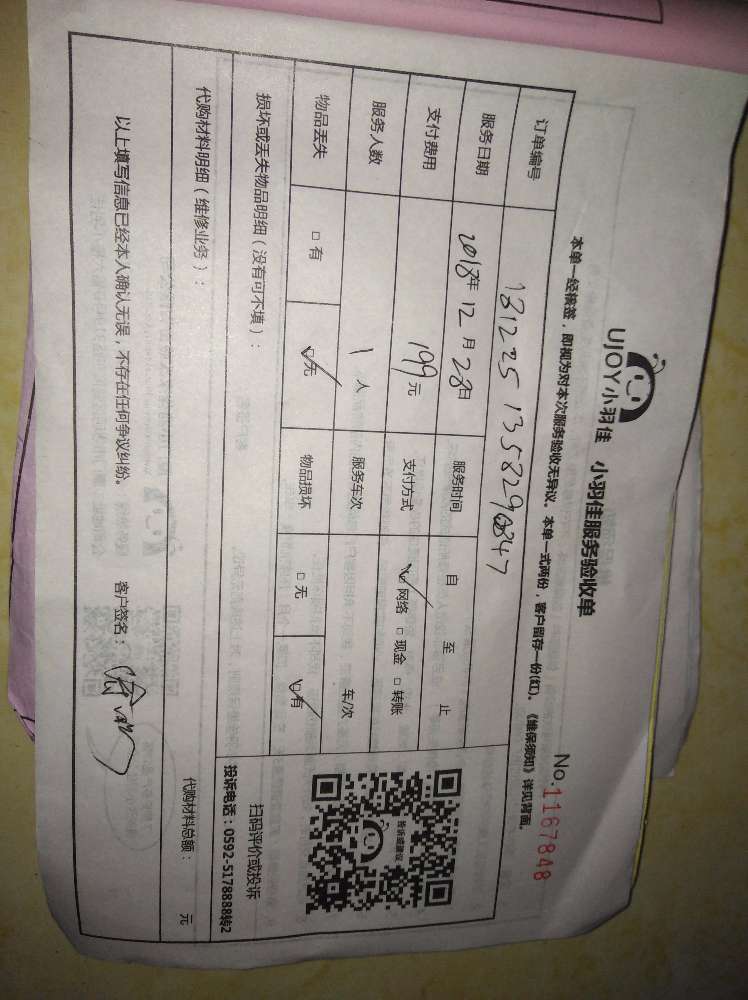 UJOY小羽佳 小羽佳服务验收单
No.1167848
本单一经核签，即视为对本次服务验收无异议。本单一式两份，客户留存一份(红)。《维保须知》详见背面。
订单编号 181225135829
服务日期 2018年12月28日 服务时间 自 至 止
支付费用 199元 支付方式 网络 □现金 □转账
服务人数 1人 服务车次 车/次
物品丢失 □有 □无 物品损坏 □无 □有
损坏或丢失物品明细（没有可不填）：
投诉或建议
扫码评价或投诉
投诉电话：0592-5178888转2
代购材料明细（维修业务）：
代购材料总额： 元
以上填写信息已经本人确认无误，不存在任何争议纠纷。 客户签名：